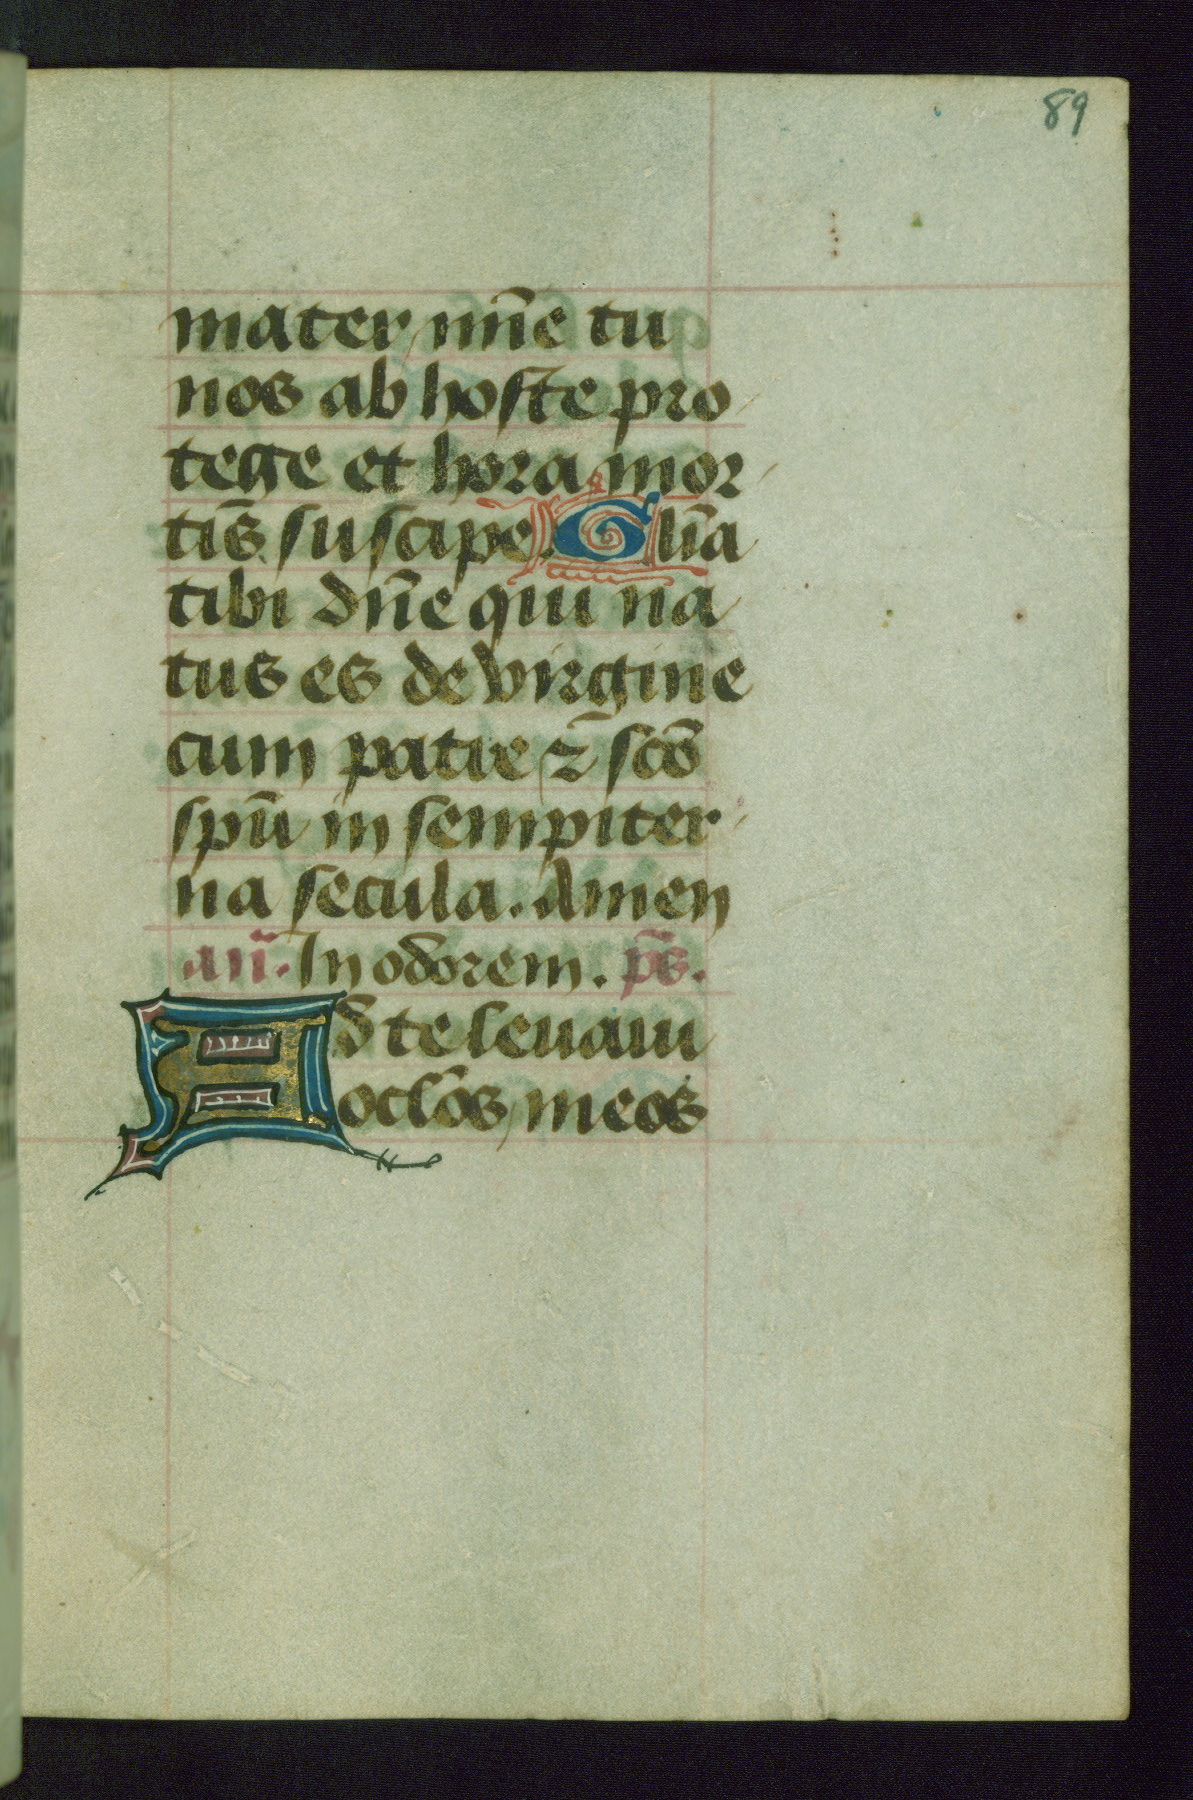 89
mater mīe tu
nos ab hoste pro
tege et hora mor
tis suscipe. Glīa
tibi dn̄e qui na
tus es de virgine
cum patre ⁊ scō
spū in sempiter
na secula. Amen
an̄. In odorem. ps̄.
Ad te leuaui
oclōs meos